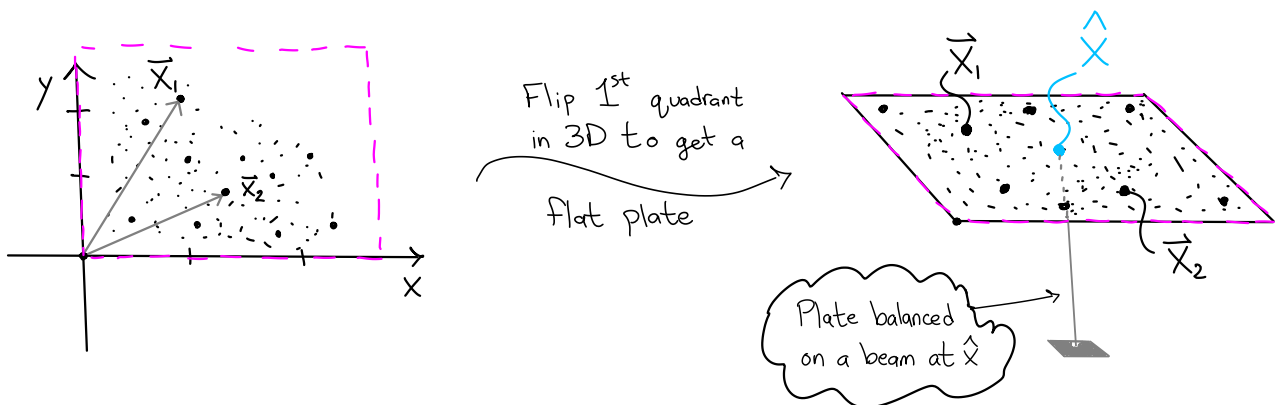 y
X⃗₁
X⃗₂
x
Flip 1ˢᵗ quadrant
in 3D to get a
flat plate
X⃗₁
X̂
X⃗₂
Plate balanced
on a beam at x̂